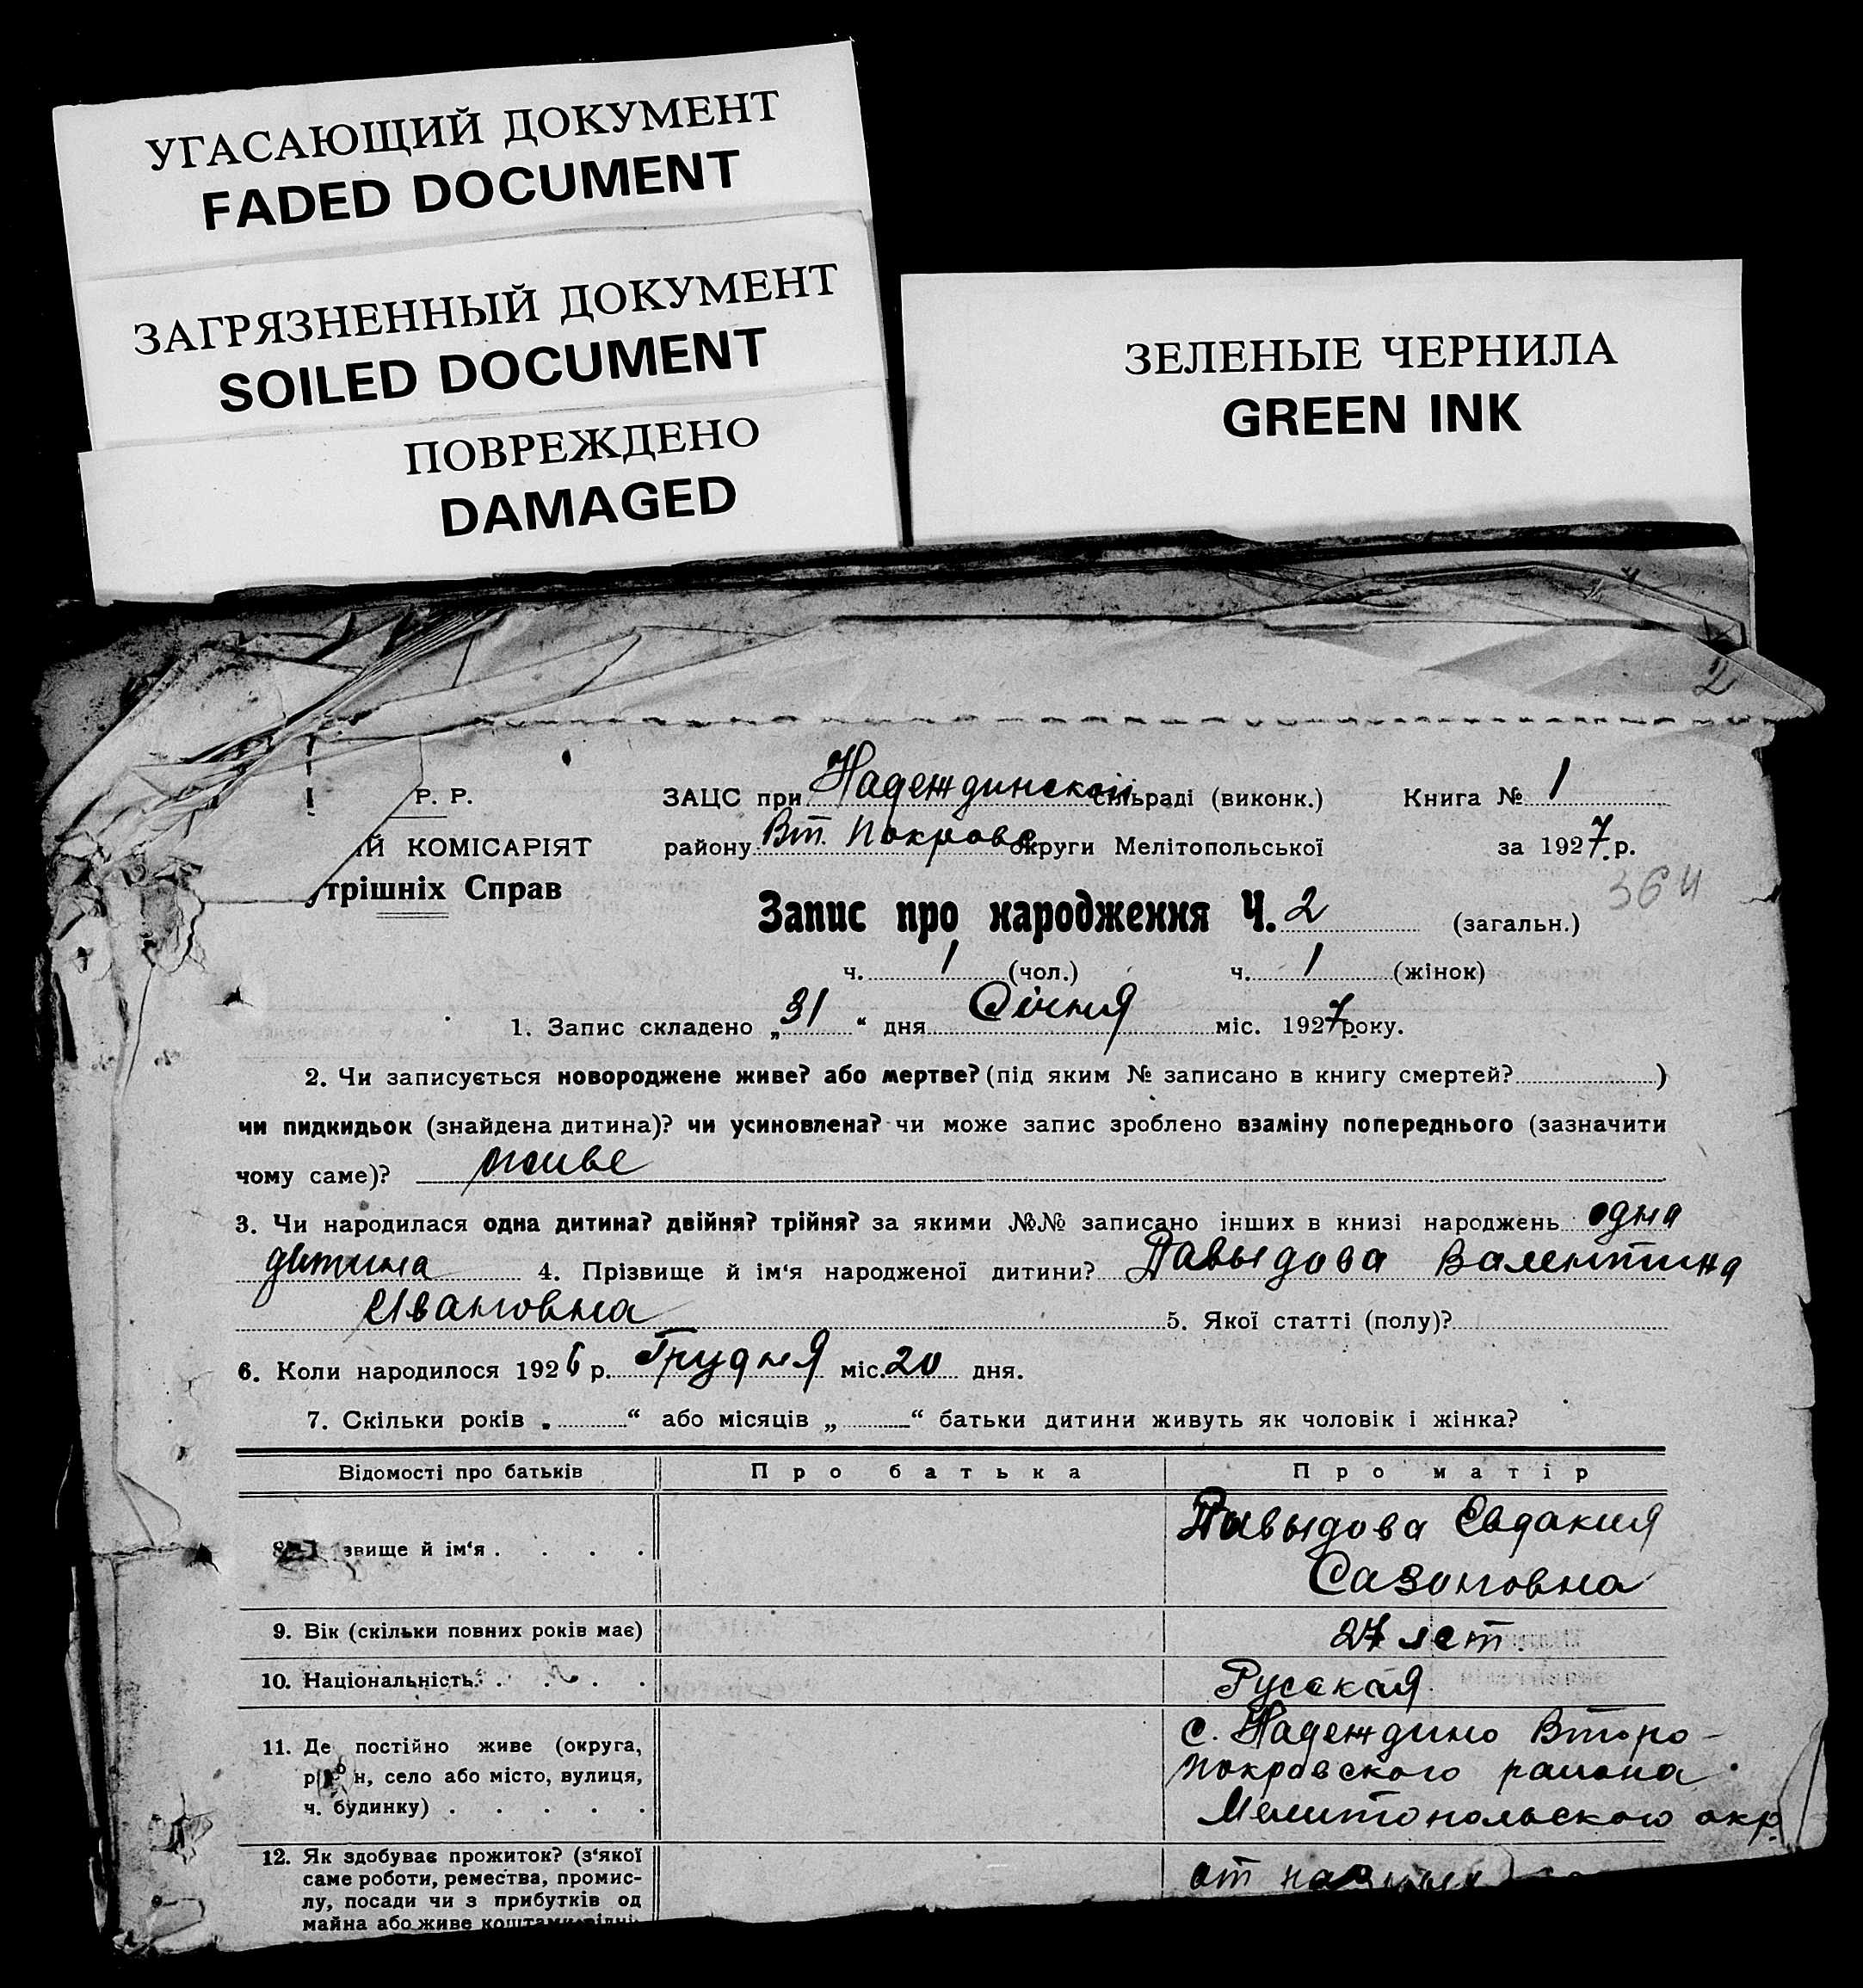 УГАСАЮЩИЙ ДОКУМЕНТ
FADED DOCUMENT
ЗАГРЯЗНЕННЫЙ ДОКУМЕНТ
SOILED DOCUMENT
ПОВРЕЖДЕНО
DAMAGED
ЗЕЛЕНЫЕ ЧЕРНИЛА
GREEN INK
2
Р. Р. ЗАЦС при Надеждинской сільраді (виконк.) Книга № 1
ІЙ КОМІСАРІЯТ району Вт. Покровс округи Мелітопольської за 1927 р.
трішніх Справ
364
Запис про народження Ч. 2 (загальн.)
ч. 1 (чол.) ч. 1 (жінок)
1. Запис складено „31“ дня Січня міс. 1927 року.
2. Чи записується новороджене живе? або мертве? (під яким № записано в книгу смертей? )
чи пидкидьок (знайдена дитина)? чи усиновлена? чи може запис зроблено взаміну попереднього (зазначити
чому саме)? живе
3. Чи народилася одна дитина? двійня? трійня? за якими №№ записано інших в книзі народжень одна
дитина 4. Прізвище й ім'я народженої дитини? Давыдова Валентина
Ивановна 5. Якої статті (полу)?
6. Коли народилося 1926 р. Грудня міс. 20 дня.
7. Скільки років „ “ або місяців „ “ батьки дитини живуть як чоловік і жінка?
Відомості про батьків Про батька Про матір
8. звище й ім'я . . . . Давыдова Евдакия
Сазоновна
9. Вік (скільки повних років має) 27 лет.
10. Національність . . . . Русская
11. Де постійно живе (округа, с. Надеждино Второ-
р н, село або місто, вулиця, покровского района
ч. будинку) . . . . . Мелитопольского окр.
12. Як здобуває прожиток? (з'якої от
саме роботи, ремества, промис-
лу, посади чи з прибутків од
майна або живе коштами